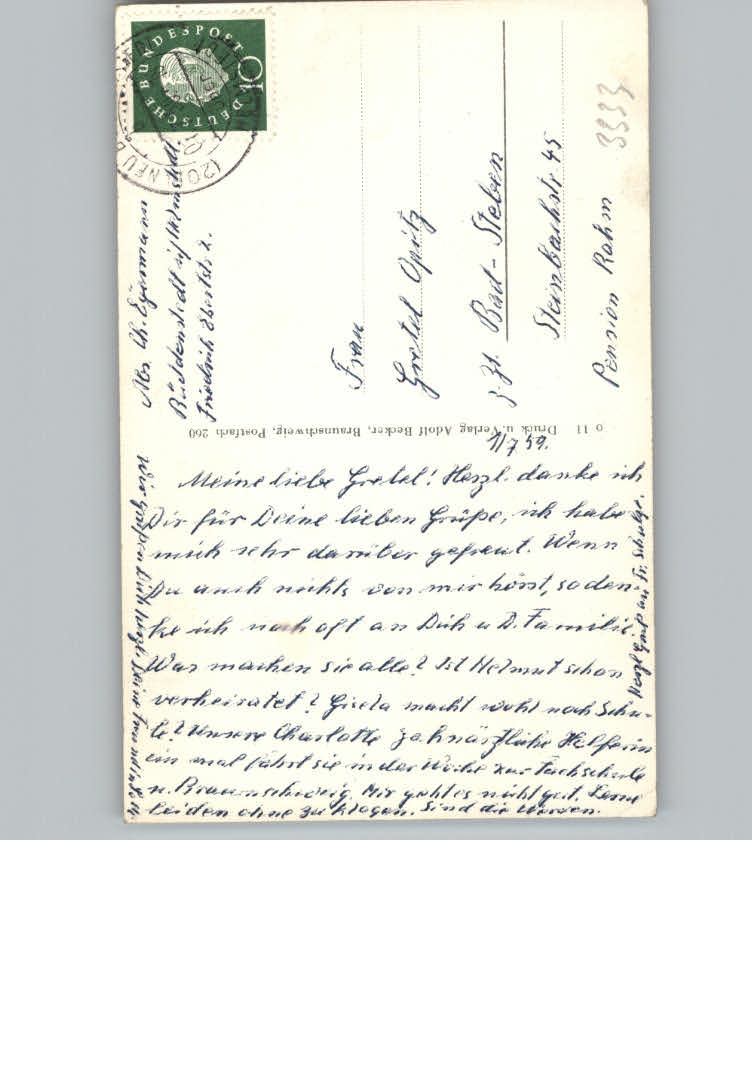 DEUTSCHE BUNDESPOST
10
(20
NEU B
Abs. Ch.
Büddenstedt ü/Helmstedt.
Friedrich Ebertstr. 2.
Frau
Gretel Opitz
z. Zt. Bad-Steben
Steinbachstr. 45
Pension Rahm
3333
o 11 Druck u. Verlag Adolf Becker, Braunschweig, Postfach 260
11/7 59.
Meine liebe Gretel! Herzl. danke ich
Dir für Deine lieben Grüße, ich habe
mich sehr darüber gefreut. Wenn
Du auch nichts von mir hörst, so den-
ke ich noch oft an Dich u D. Familie.
Was machen sie alle? Ist Helmut schon
verheiratet? Gisela macht wohl noch Schu-
le? Unsere Charlotte zahnärztliche Helferin
ein mal fährt sie in der Woche zur Fachschule
n. Braunschweig. Mir geht es nicht gut. Lerne
leiden ohne zu klagen. Sind die Worden.
Wir grüßen Dich herzl. Deine Freundin
Herzl Grüß an Fr. Schulze.